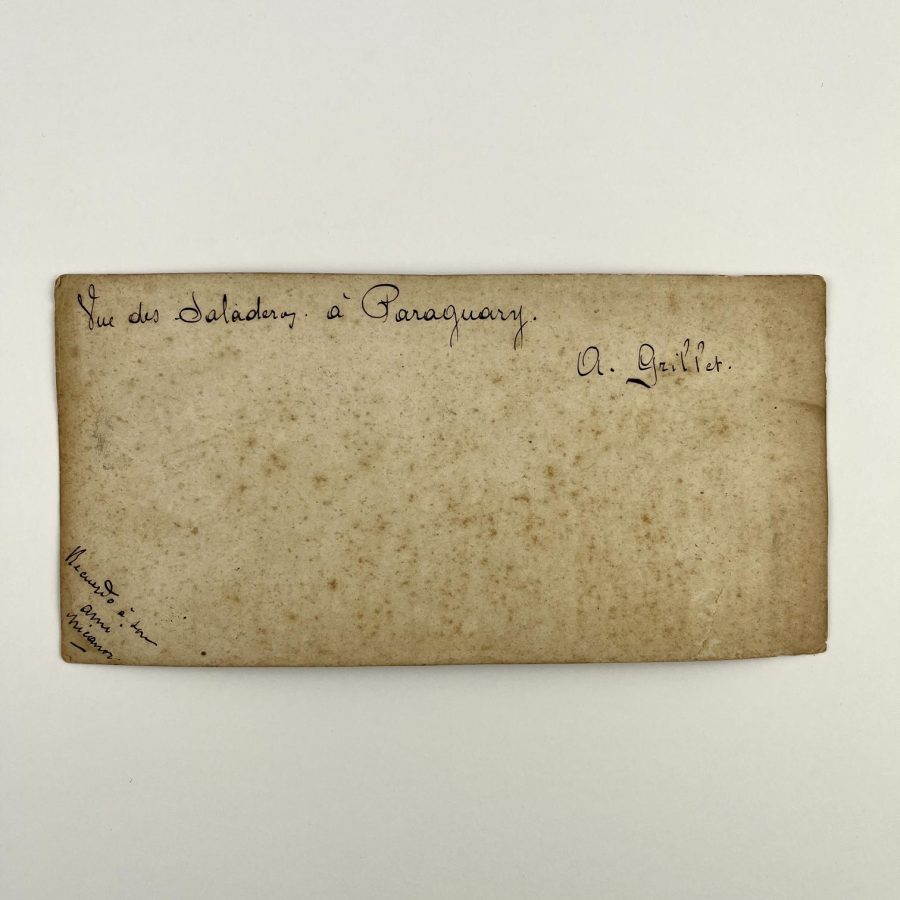 Vue des Saladeros. à Paraguary.
A. Grillet.
Recuerdo à son
ami
Nicanor